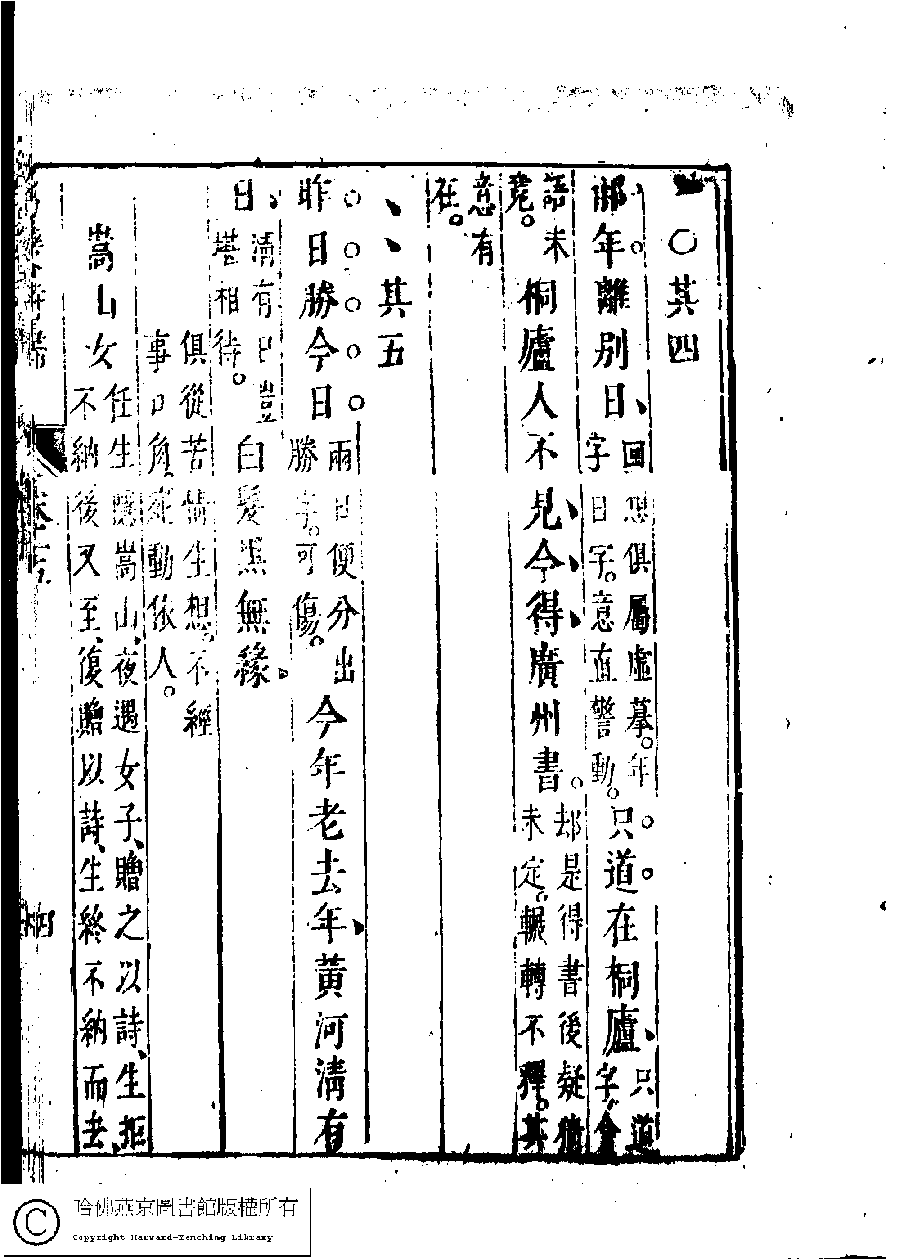 〇其四
那年離別日、回想俱屬虛摹。年字日字。意直警動。只道在桐廬、只道字。會
語未完。桐廬人不見今得廣州書。却是得書後疑猜未定。輾轉不釋。其
意有在。
其五
昨日勝今日兩日便分出勝字。可傷。今年老去年黃河清有
日、清有日豈堪相待。白髮黑無緣、
俱從苦情生想。不經事口角。動依人。
嵩山女任生隱嵩山、夜遇女子、贈之以詩、生拒不納後又至、復贈以詩、生終不納而去、
哈佛燕京圖書館版權所有
Copyright Harvard-Yenching Library